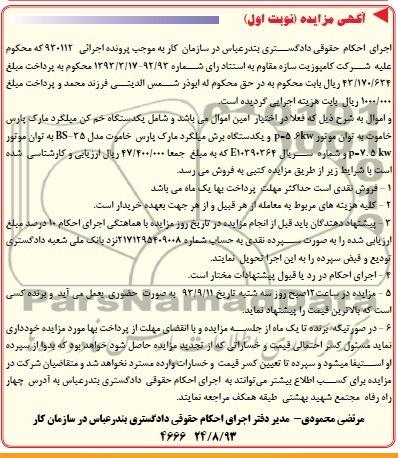 آگهی مزایده (نوبت اول)
اجرای احکام حقوقی دادگستری بندرعباس در سازمان کار به موجب پرونده اجرائی ۹۳۰۱۱۲ که محکوم
علیه شرکت کامپوزیت سازه مقاوم به استناد رای شماره ۹۲/۹۳-۱۳۹۳/۳/۱۷ محکوم به پرداخت مبلغ
۴۳/۱۷۰/۶۳۴ ریال بابت محکوم به در حق محکوم له ابوذر شمس الدینی فرزند محمد و پرداخت مبلغ
۱/۰۰۰/۰۰۰ ریال بابت هزینه اجرایی گردیده است.
و اموال به شرح ذیل که فعلا در اختیار امین اموال می باشد و شامل یکدستگاه خم کن میلگرد مارک پارس
خاموت به توان موتور p=۵.۶kw و یکدستگاه برش میلگرد مارک پارس خاموت مدل BS-۳۵ به توان موتور
p=۷.۵ kw و شماره سریال E۱۰۳۹۰۲۶۴ که به مبلغ جمعا ۴۷/۴۰۰/۰۰۰ ریال ارزیابی و کارشناسی شده
است با شرایط زیر از طریق مزایده کتبی به فروش می رسد.
۱ - فروش نقدی است حداکثر مهلت پرداخت بها یک ماه می باشد
۲ - کلیه هزینه های مربوط به معامله از هر قبیل و از هر جهت بعهده خریدار است.
۳ - پیشنهاد دهندگان باید قبل از انجام مزایده در تاریخ روز مزایده با هماهنگی اجرای احکام ۱۰ درصد مبلغ
ارزیابی شده را به صورت سپرده نقدی به حساب شماره ۲۱۷۱۲۹۵۴۰۹۰۰۸ نزد بانک ملی شعبه دادگستری
تودیع و قبض سپرده را به این اجرا تحویل نمایند.
۴ - اجرای احکام در رد یا قبول پیشنهادات مختار است.
۵ - مزایده در ساعت ۱۲ صبح روز سه شنبه تاریخ ۹۳/۹/۱۱ به صورت حضوری بعمل می آید و برنده کسی
است که بالاترین قیمت را پیشنهاد نماید.
۶ - در صورتیکه برنده تا یک ماه از جلسه مزایده و با انقضای مهلت از پرداخت بها مورد مزایده خودداری
نماید مسئول کسر احتمالی قیمت و خساراتی که از تجدید مزایده حاصل شود خواهد بود که بدوا از سپرده
او استیفا میشود و سپرده تا تعیین کسر قیمت و خسارات وارده مسترد نخواهد شد و متقاضیان شرکت در
مزایده برای کسب اطلاع بیشتر می‌توانند به اجرای احکام حقوقی دادگستری بندرعباس به آدرس چهار
راه رفاه مجتمع شهید بهشتی طبقه همکف مراجعه نمایند.
مرتضی محمودی- مدیر دفتر اجرای احکام حقوقی دادگستری بندرعباس در سازمان کار
۲۴/۸/۹۳ ۴۶۶۶
ParsNamadData